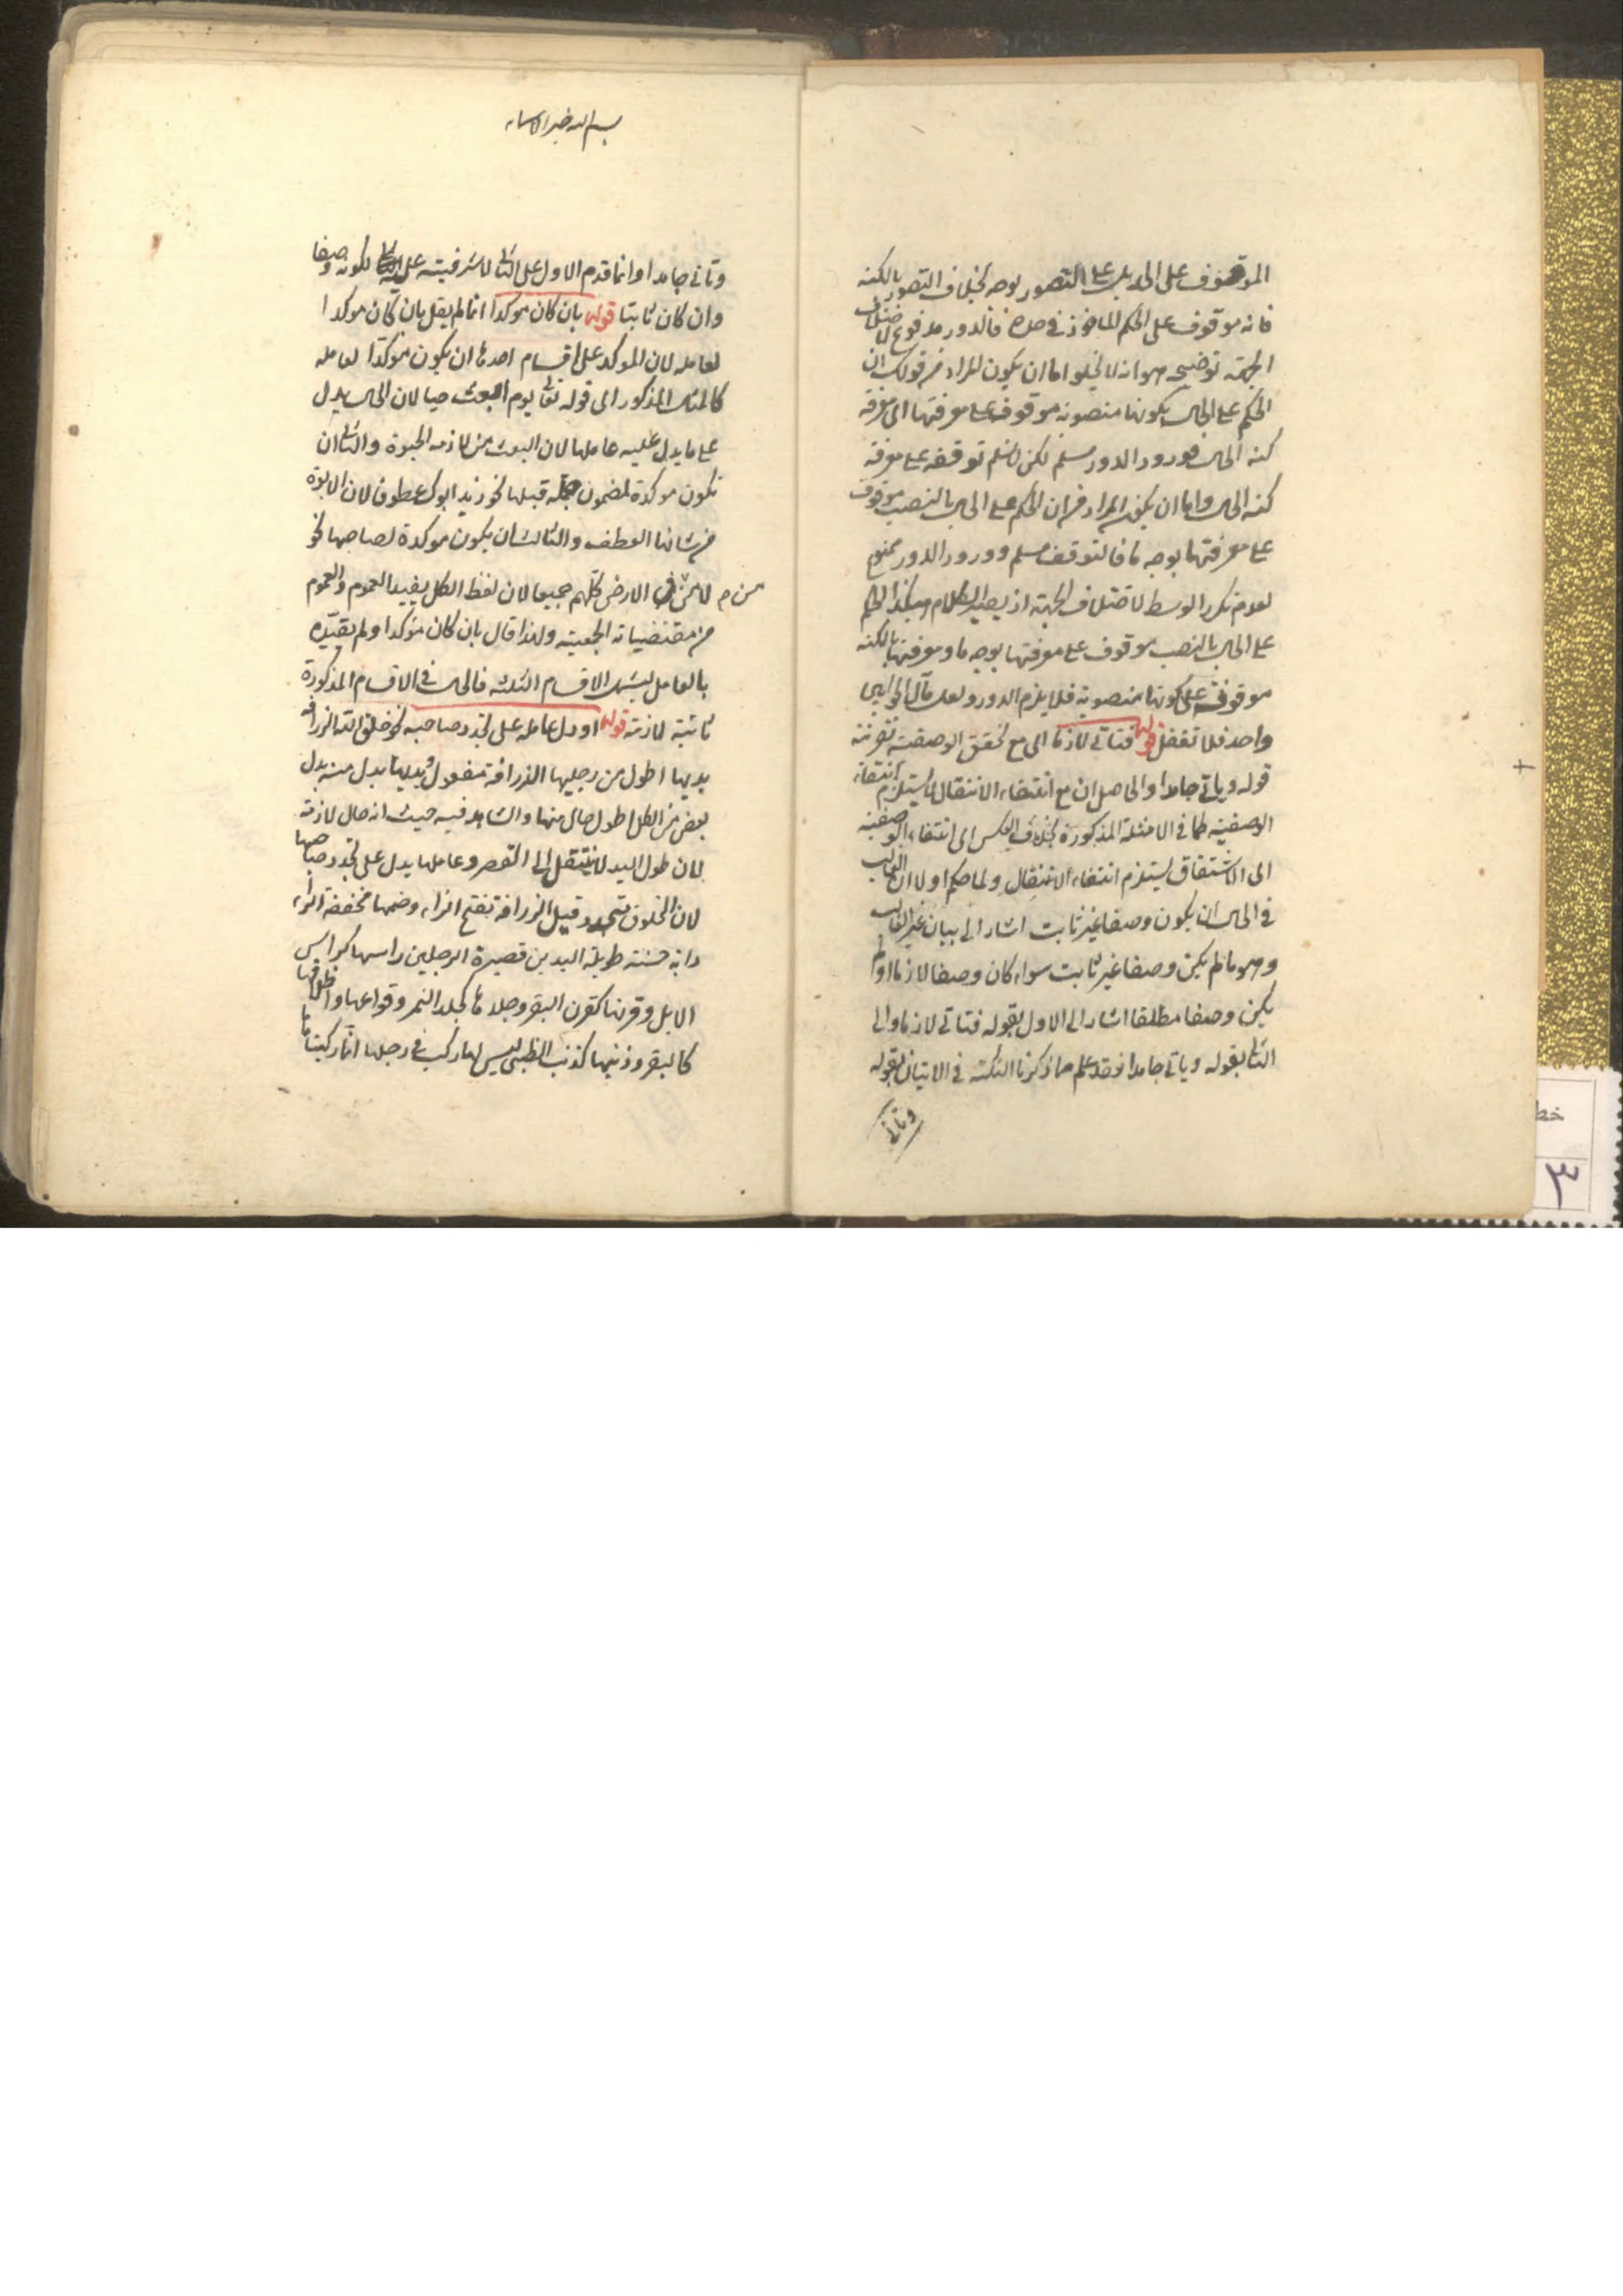 الموقوف على الحد بل على التصور بوجه بخلاف التصور بالكنه
فانه موقوف على الحكم الماخوذ في حده فالدور مدفوع لاختلاف
الجهة توضيحه هو انه لا يخلو اما ان يكون المراد من قولك ان
الحكم على الحال بكونها منصوبة موقوف على معرفتها اى معرفة
كنه الحال فورود الدور مسلم لكن لا نسلم توقفه على معرفة
كنه الحال واما ان يكون المراد من ان الحكم على الحال بالنصب موقوف
على معرفتها بوجه ما فالتوقف مسلم وورود الدور ممنوع
لعدم تكرر الوسط لاختلاف الجهة اذ يصير الكلام هكذا الحكم
على الحال بالنصب موقوف على معرفتها بوجه ما ومعرفتها بالكنه
موقوفة على كونها منصوبة فلا يلزم الدور ولعل مآل الجوابين
واحد فلا تغفل قوله فتاتى لازما اى مع تحقق الوصفية بقرينة
قوله وياتى جامدا والحاصل ان مع انتفاء الانتقال لا يستلزم انتفاء
الوصفية كما في الامثلة المذكورة بخلاف العكس اى انتفاء الوصفية
اى الاشتقاق يستلزم انتفاء الانتقال ولما حكم اولا ان الغالب
في الحال ان يكون وصفا غير ثابت اشار الى بيان غير الغالب
وهو ما لم يكن وصفا غير ثابت سواء كان وصفا لازما او لم
يكن وصفا مطلقا اشار الى الاول بقوله فتاتى لازما والى
الثانى بقوله وياتى جامدا وقد علم مما ذكرنا النكتة في الاتيان بقوله
وتاتى
بسم الله خير الاسماء
وتاتى جامدا وانما قدم الاول على الثانى لاشرفيته على الثانى لكونه وصفا
وان كان ثابتا قوله بان كان موكدا انما لم يقل بان كان موكدا
لعامله لان الموكد على اقسام احدها ان يكون موكدا لعامله
كالمثال المذكور اى قوله تعالى يوم ابعث حيا لان الحال يدل
على ما يدل عليه عاملها لان البعث من لازمه الحيوة والثانى ان
تكون موكدة لمضمون جملة قبلها نحو زيد ابوك عطوفا لان الابوة
من شانها العطف والثالث ان يكون موكدة لصاحبها نحو
لآمن من في الارض كلهم جميعا لان لفظ الكل يفيد العموم والعموم
من مقتضياته الجمعية ولهذا قال بان كان موكدا ولم يقيده
بالعامل ليشمل الاقسام الثلثة فالحال في الاقسام المذكورة
ثابتة لازمة قوله او دل عامله على تجدد صاحبه نحو خلق الله الزرافة
يديها اطول من رجليها الزرافة مفعول ويديها بدل منه بدل
بعض من الكل اطول حال منها والشاهد فيه حيث انه حال لازمة
لان طول اليد لا ينتقل الى القصر وعاملها يدل على تجدد صاحبها
لان المخلوق يتجدد وقيل الزرافة بفتح الزاء وضمها مخففة الراء
دابة حسنة طويلة اليدين قصيرة الرجلين راسها كراس
الابل وقرنها كقرن البقر وجلدها كجلد النمر وقوائمها واظلافها
كالبقر وذنبها كذنب الظبى ليس لها ركب في رجلها انما ركبتاها